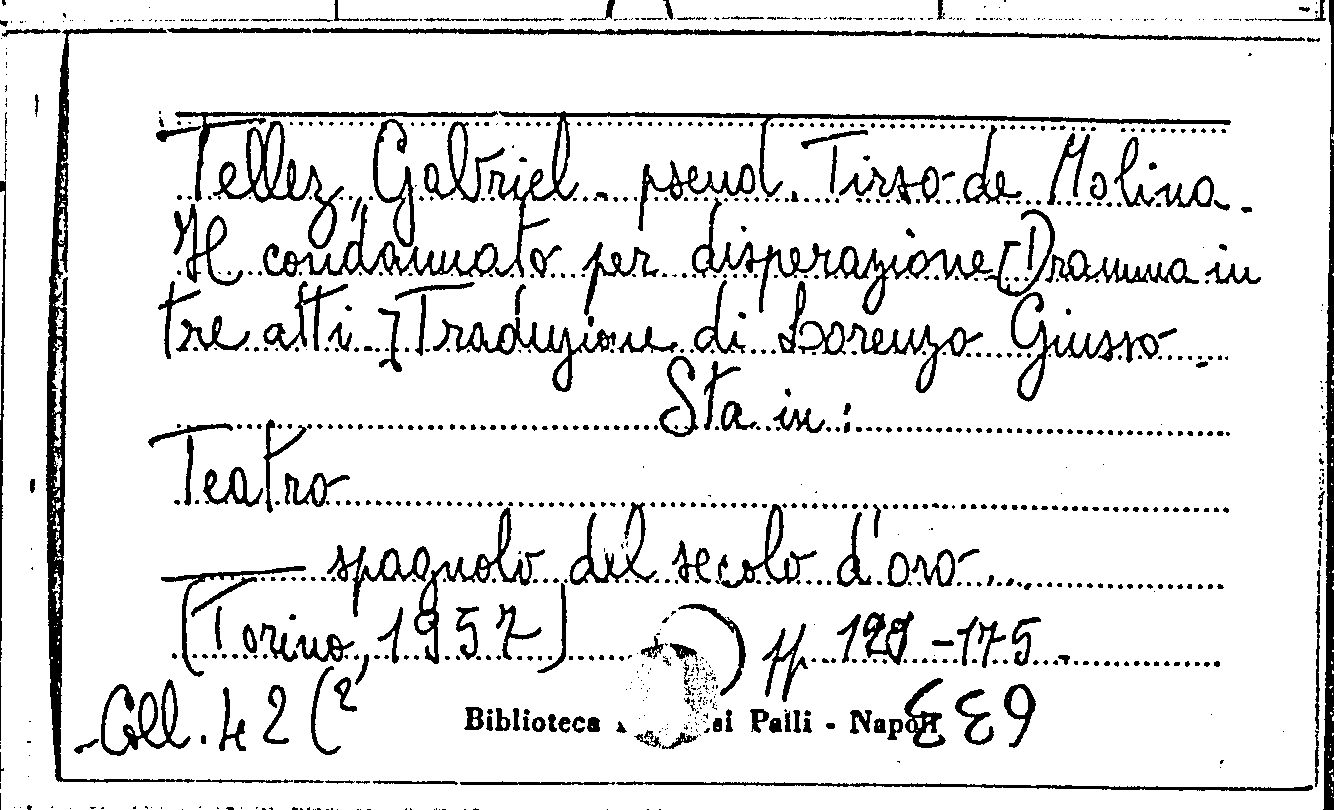 Tellez, Gabriel - pseud. Tirso de Molina -
Il condannato per disperazione [Dramma in
tre atti -] Traduzione di Lorenzo Giusso -
Sta in :
Teatro
——— spagnolo del secolo d'oro ....
(Torino, 1957) pp. 129-175 -
Coll. 42 (2
Biblioteca ai Paili - Napoli